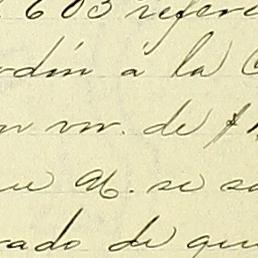 603 refere
rdin á la C
vn. de
ue M. se sa
rado de que